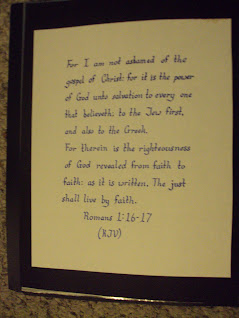 For I am not ashamed of the
gospel of Christ: for it is the power
of God unto salvation to every one
that believeth; to the Jew first,
and also to the Greek.
For therein is the righteousness
of God revealed from faith to
faith: as it is written, The just
shall live by faith.
Romans 1:16-17
(KJV)